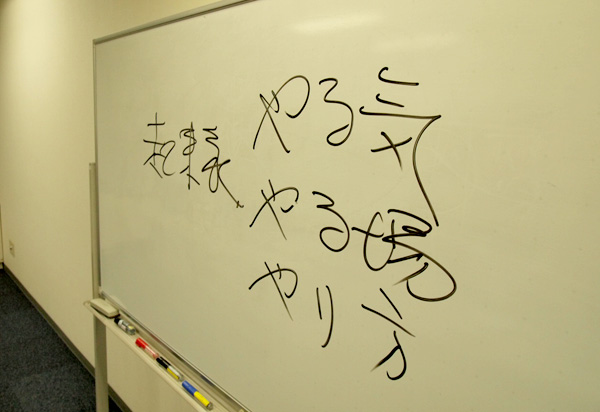 やる気
やる
やり方
起業